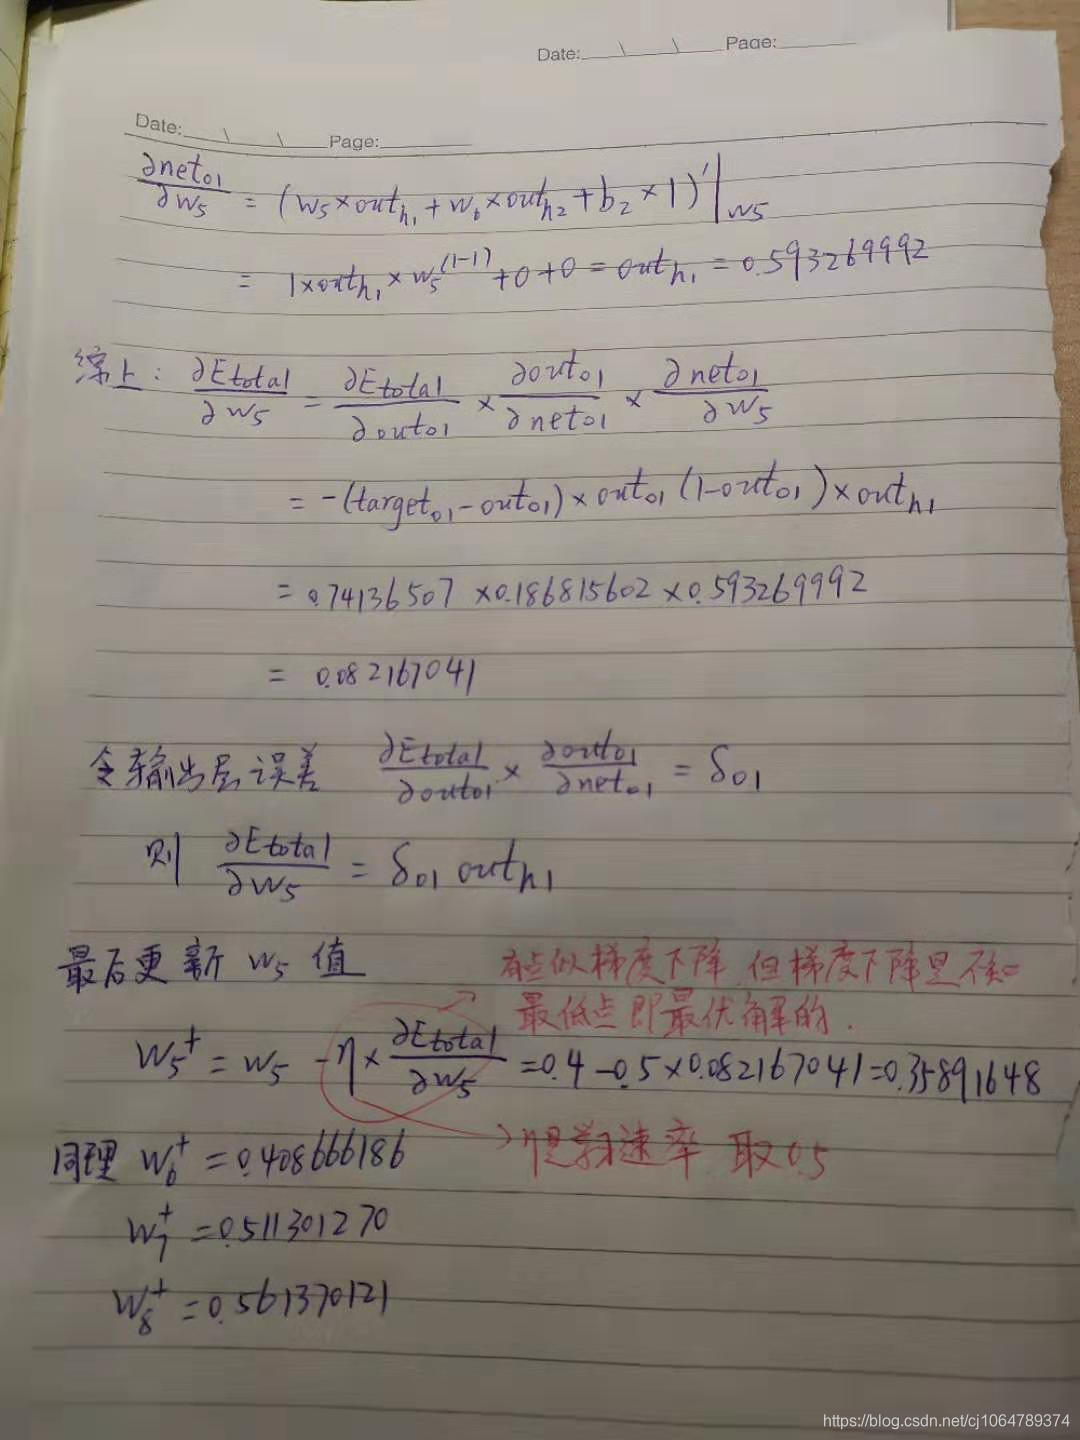 Date:___\___\___Page:______
Date:___\___\___Page:______
∂net₀₁/∂w₅ = (w₅×out_h₁+w₆×out_h₂+b₂×1)'|w₅
= 1×out_h₁×w₅^(1-1)+0+0=out_h₁=0.593269992
综上: ∂Etotal/∂w₅ = ∂Etotal/∂out₀₁ × ∂out₀₁/∂net₀₁ × ∂net₀₁/∂w₅
= -(target₀₁-out₀₁)×out₀₁(1-out₀₁)×out_h₁
= 0.74136507×0.186815602×0.593269992
= 0.082167041
令输出层误差 ∂Etotal/∂out₀₁ × ∂out₀₁/∂net₀₁ = δ₀₁
则 ∂Etotal/∂w₅ = δ₀₁ out_h₁
最后更新 w₅ 值
有点似梯度下降 但梯度下降是
最低点即最优解的.
w₅⁺ = w₅ -η× ∂Etotal/∂w₅ =0.4-0.5×0.082167041=0.35891648
同理 w₆⁺ =0.408666186
η是学习速率 取0.5
w₇⁺ =0.511301270
w₈⁺ =0.561370121
https://blog.csdn.net/cj1064789374